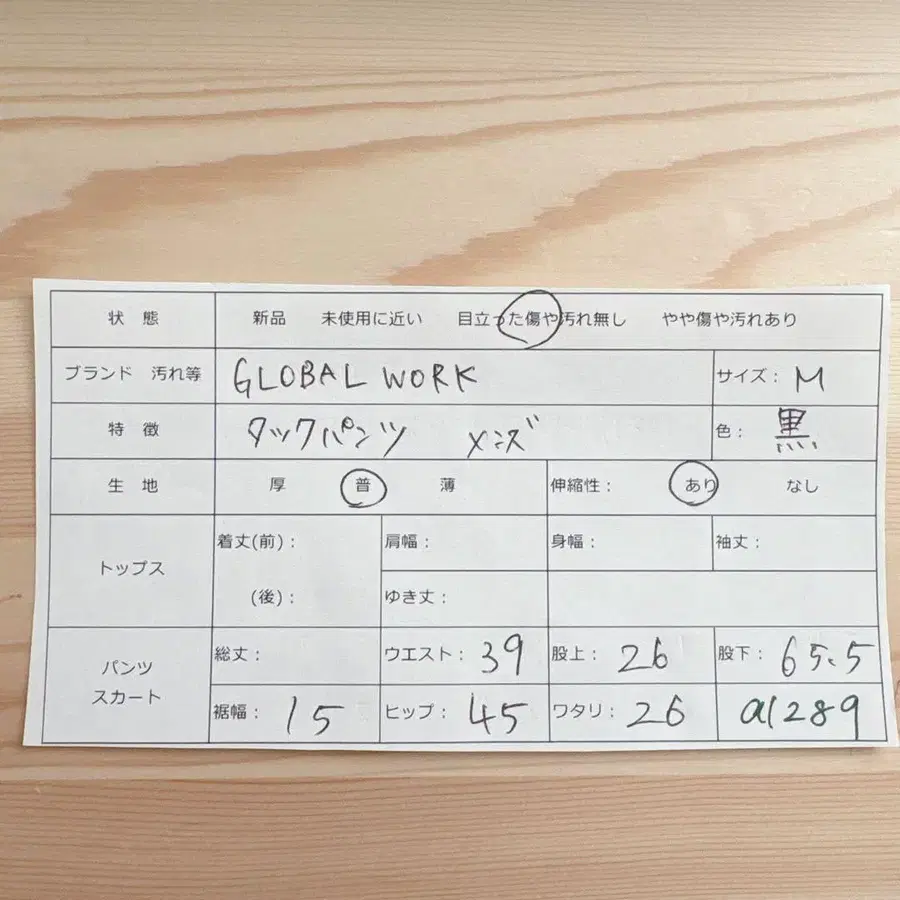 状 態 新品 未使用に近い 目立った傷や汚れ無し やや傷や汚れあり
ブランド 汚れ等 GLOBAL WORK サイズ: M
特 徴 タックパンツ メンズ 色: 黒
生 地 厚 普 薄 伸縮性: あり なし
トップス 着丈(前): 肩幅: 身幅: 袖丈:
(後): ゆき丈:
パンツ スカート 総丈: ウエスト: 39 股上: 26 股下: 65.5
裾幅: 15 ヒップ: 45 ワタリ: 26 a1289